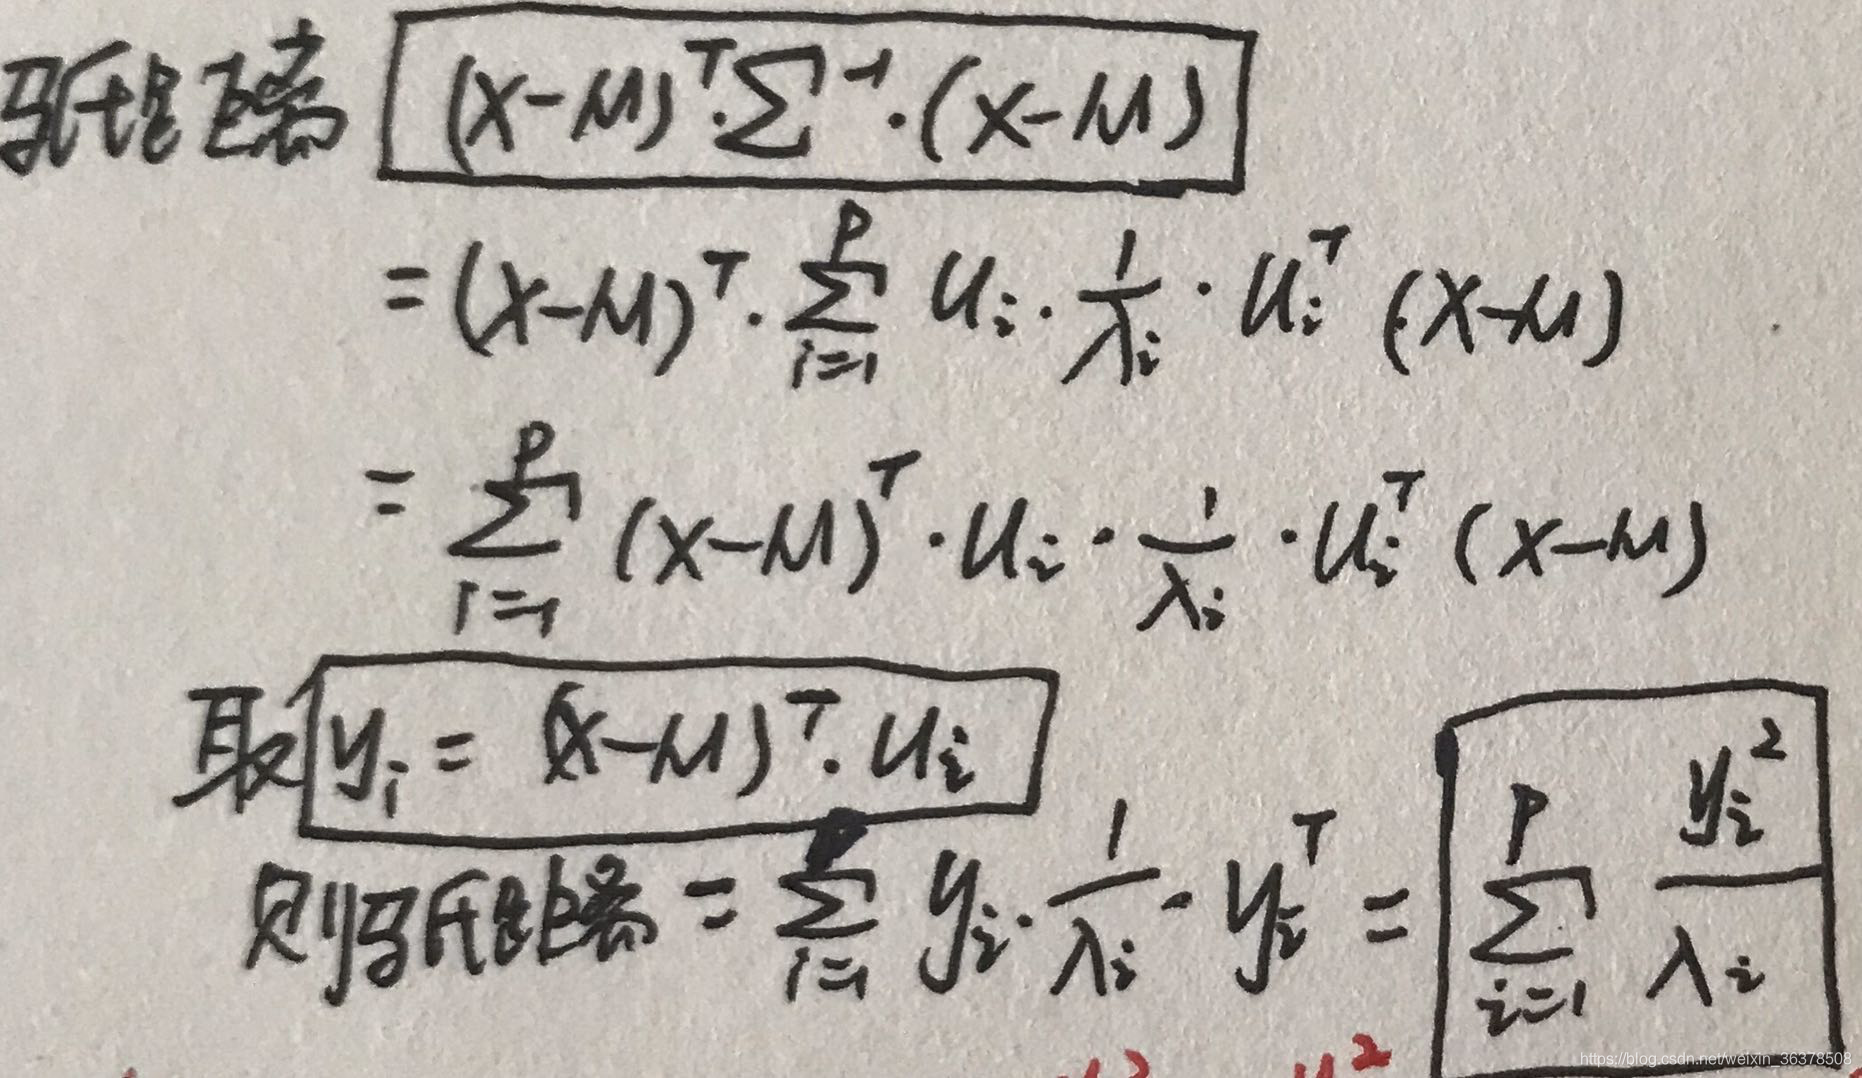 马氏距离 (x-μ)ᵀ·Σ⁻¹·(x-μ)
= (x-μ)ᵀ · ∑_{i=1}^{p} u_i · 1/λ_i · u_iᵀ (x-μ)
= ∑_{i=1}^{p} (x-μ)ᵀ · u_i · 1/λ_i · u_iᵀ (x-μ)
取 y_i = (x-μ)ᵀ · u_i
则马氏距离 = ∑_{i=1}^{p} y_i · 1/λ_i · y_iᵀ = ∑_{i=1}^{p} y_i²/λ_i
https://blog.csdn.net/weixin_36378508